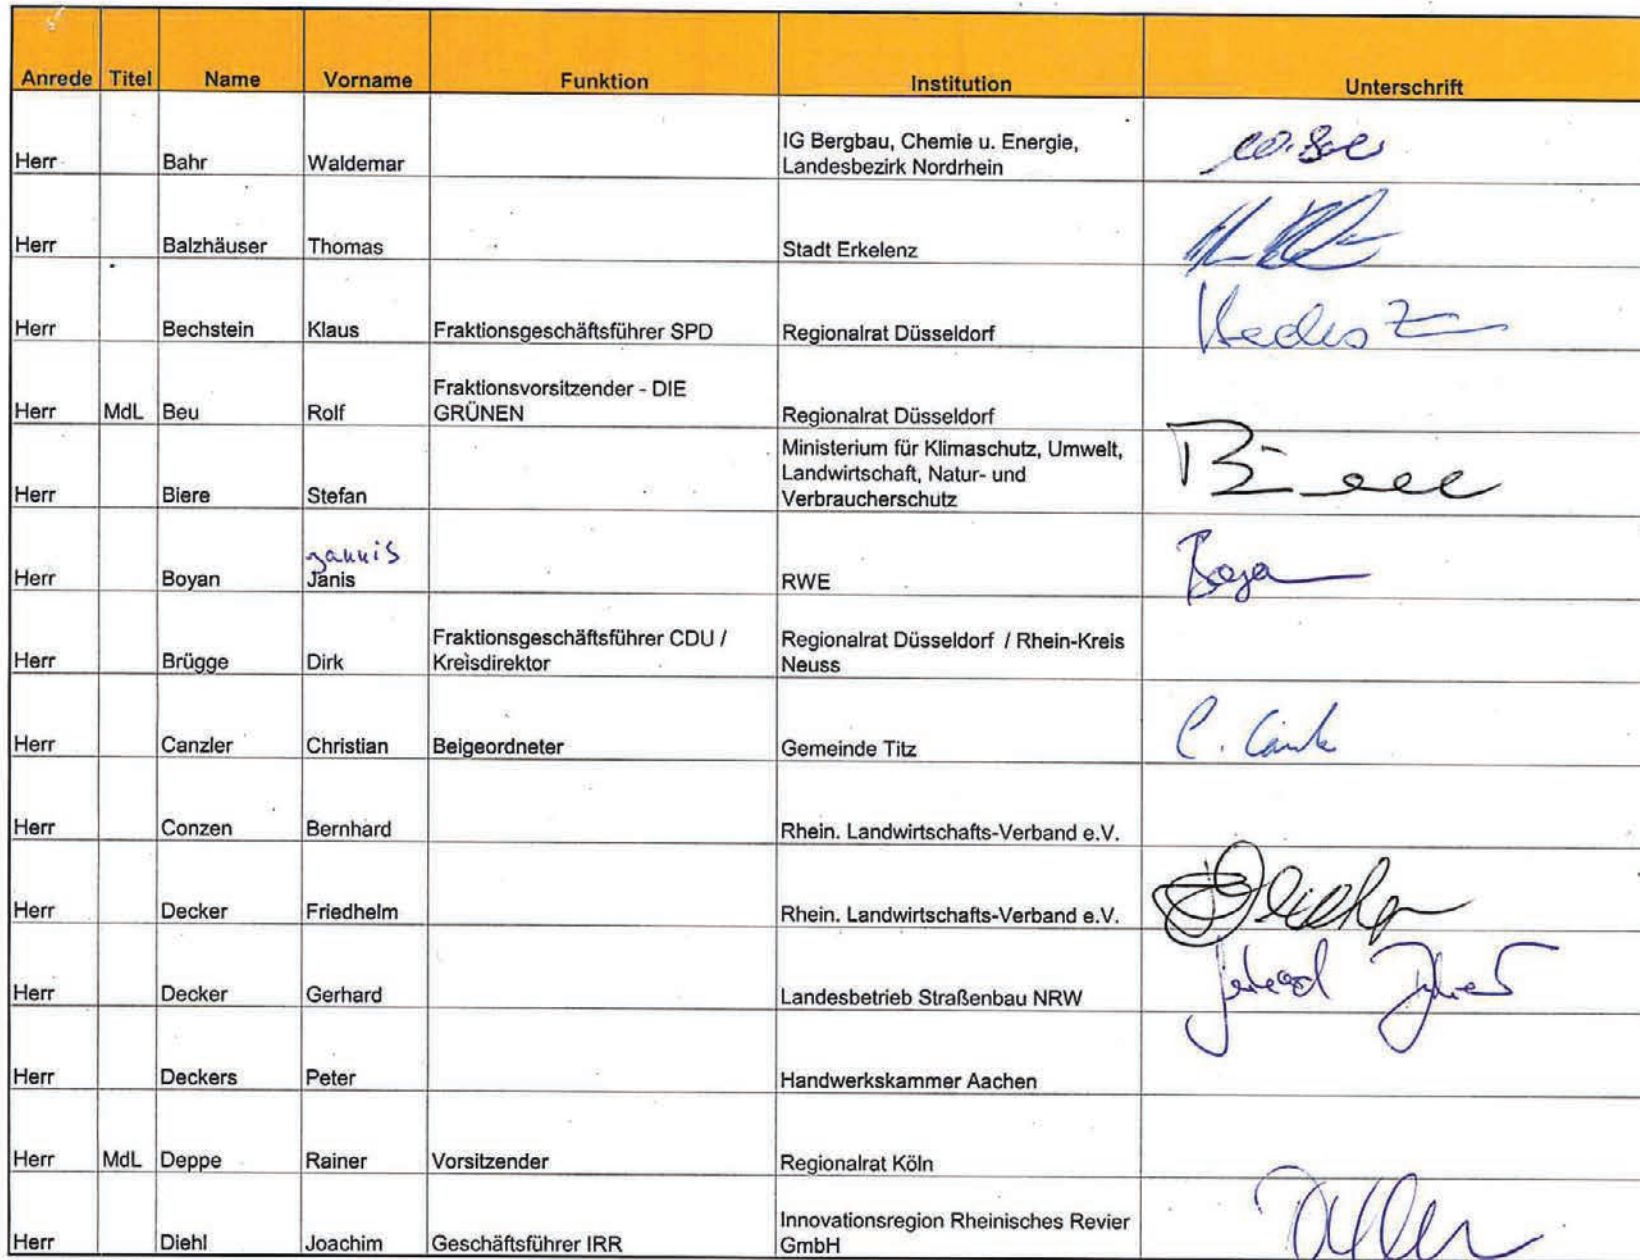 Anrede Titel Name Vorname Funktion Institution Unterschrift
Herr Bahr Waldemar IG Bergbau, Chemie u. Energie,
Landesbezirk Nordrhein
Herr Balzhäuser Thomas Stadt Erkelenz
Herr Bechstein Klaus Fraktionsgeschäftsführer SPD Regionalrat Düsseldorf
Herr MdL Beu Rolf Fraktionsvorsitzender - DIE
GRÜNEN Regionalrat Düsseldorf
Herr Biere Stefan Ministerium für Klimaschutz, Umwelt,
Landwirtschaft, Natur- und
Verbraucherschutz
Herr Boyan Janis RWE
Herr Brügge Dirk Fraktionsgeschäftsführer CDU / Regionalrat Düsseldorf / Rhein-Kreis
Kreisdirektor Neuss
Herr Canzler Christian Beigeordneter Gemeinde Titz
Herr Conzen Bernhard Rhein. Landwirtschafts-Verband e.V.
Herr Decker Friedhelm Rhein. Landwirtschafts-Verband e.V.
Herr Decker Gerhard Landesbetrieb Straßenbau NRW
Herr Deckers Peter Handwerkskammer Aachen
Herr MdL Deppe Rainer Vorsitzender Regionalrat Köln
Herr Diehl Joachim Geschäftsführer IRR Innovationsregion Rheinisches Revier
GmbH